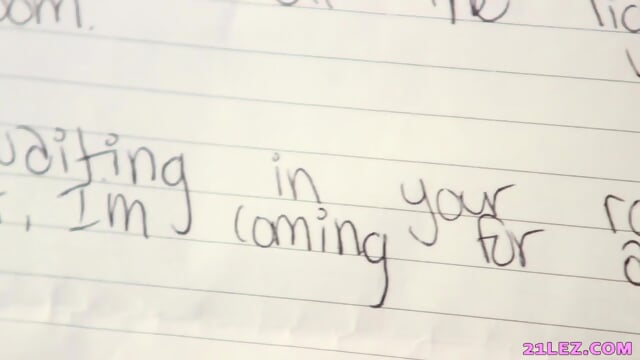 oom. the lic
aiting in your ro
, Im coming for
21LEZ.COM